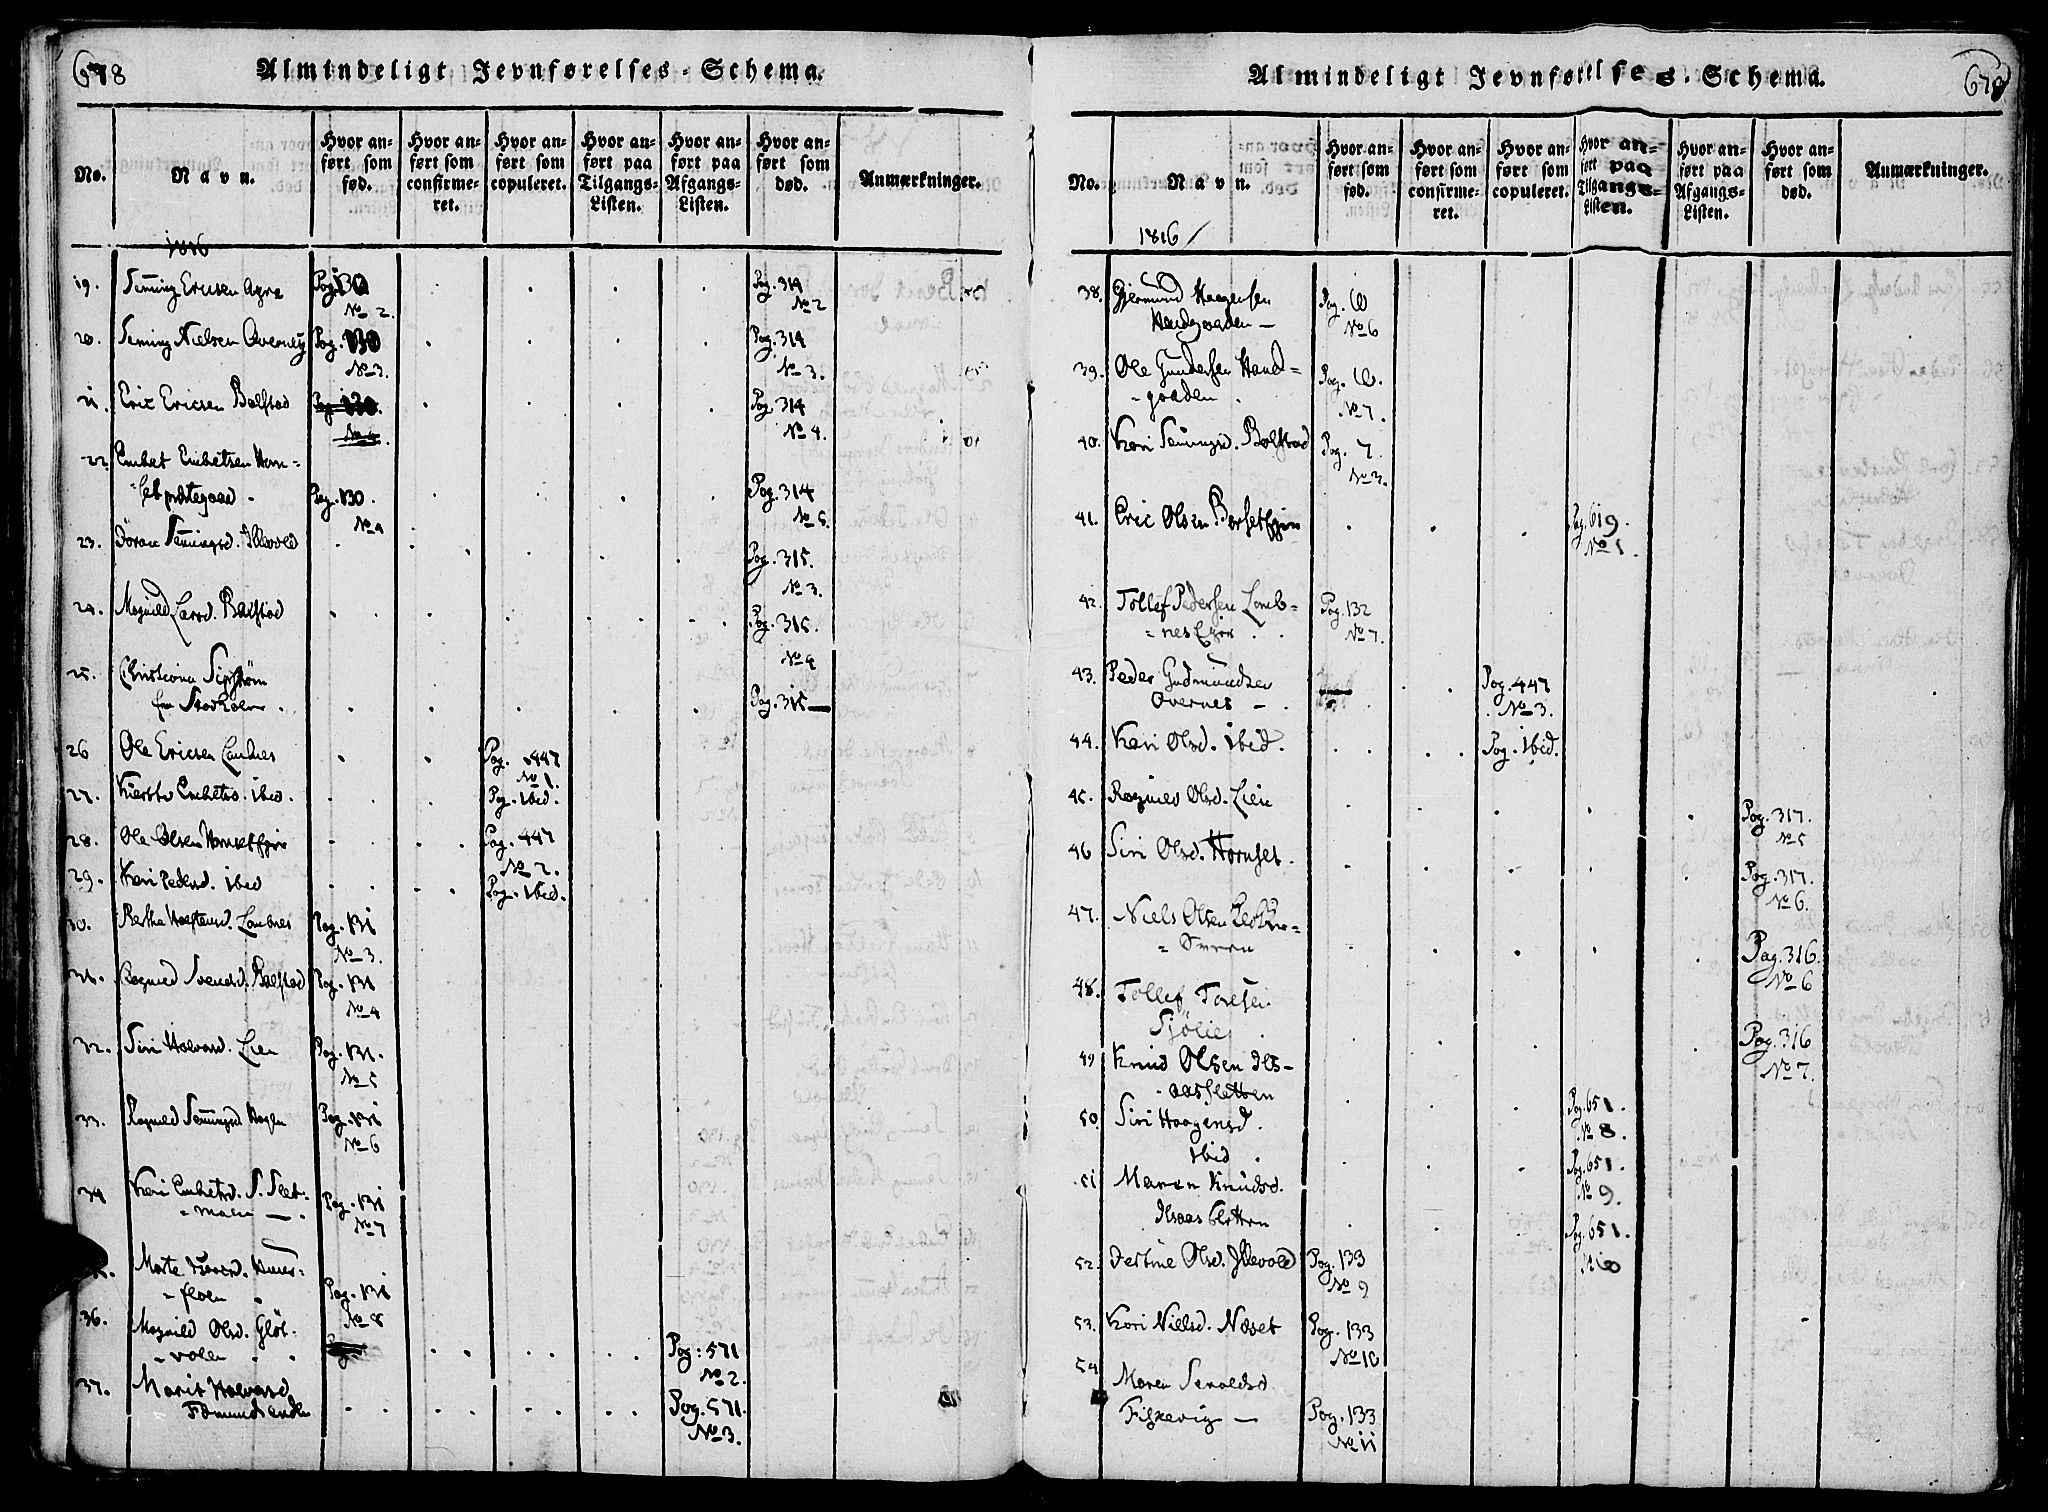 678
Almindeligt Jevnførelses-Schema.
No.
Navn.
Hvor an-
ført som
fød.
Hvor an-
ført som
confirme-
ret.
Hvor an-
ført som
copuleret.
Hvor an-
ført paa
Tilgangs-
Listen.
Hvor an-
ført paa
Afgangs-
Listen.
Hvor an-
ført som
død.
Anmærkninger.
1816
19. Semming Ericsen Agre Pag. 130 Pag. 314
No 2. No 2
20. Seming Nielsen Øvernes Pag. 130 Pag. 314
No 3. No 3.
21. Eric Ericsen Bolstad Pag. 130. Pag. 314
No 4. No 4.
22. Embet Embetsen Horn-
set præstegaard - Pag. 130. Pag. 314
No 4 No 5.
23. Jöran Semingsd. Illevold Pag. 315.
No 3.
24. Magnild Larsd. Bolstad Pag. 315.
No 4
25. Christiana
fra Stockolm. Pag. 315
26 Ole Ericsen Landnes Pag. 447
No 1.
27. Kiersti Embetsd. ibid. Pag. ibid.
28. Ole Olsen Hornset Ejer Pag. 447
No 2.
29. Kari Pedersd. ibid Pag. ibid.
30. Berthe Halstensd. Lombnes Pag. 131
No 3.
31. Ragnild Svensd. Bolstad Pag. 131
No 4
32. Siri Halvorsd. Lien Pag. 131.
No 5
33. Ragnild Semingsd Hagen Pag. 131
No 6
34 Kari Embetsd. S. Slet-
-moen - Pag. 131
No 7
35. Marte Iversd.
-floen Pag. 131
36. No 8
Magnild Olsd. Gløt-
-volen Pag: 571
No 2.
37. Marit Halvorsd.
Fæmundsenden Pag. 571.
No 3.
679
Almindeligt Jevnførelses-Schema.
No.
Navn.
Hvor an-
ført som
fød.
Hvor an-
ført som
confirme-
ret.
Hvor an-
ført som
copuleret.
Hvor an-
ført paa
Tilgangs-
Listen.
Hvor an-
ført paa
Afgangs-
Listen.
Hvor an-
ført som
død.
Anmærkninger.
1816
38. Gjermund Haagensen
Haudgaarden - Pag. 6
No 6
39. Ole Gundersen Haud=
-gaarden Pag. 6.
No 7.
40. Kari Semingsd. Bolstad Pag. 7
No 3.
41. Eric Olsen BersetEjer Pag. 619.
No 1.
42. Tollef Pedersen Lomb- Pag. 132
-nesEjer No 7.
43. Peder Gudmundsen Pag. 447
Øvernes - No 3.
44. Kari Olsd. ibid. Pag. ibid.
45. Ragnild Olsd. Lien Pag. 317.
No 5
46 Siri Olsd. Hornset. Pag. 317.
No 6.
47. Niels Olsen
Pag. 316.
No 6
48. Tollef Toresen
Sjölie Pag. 316
No 7.
49 Knud Olsen Ils-
-aasSletten Pag. 651.
50. Siri Haagensd. No 8.
ibid Pag. 651.
51 Maren Knudsd. No 9.
Ilsaas Sletten Pag. 651.
No 10
52. Jertine Olsd. Illevold Pag. 133
No 9
53. Kari Nielsd. Næset Pag. 133
No 10
54
Maren
Fiskevig - Pag. 133
No 11